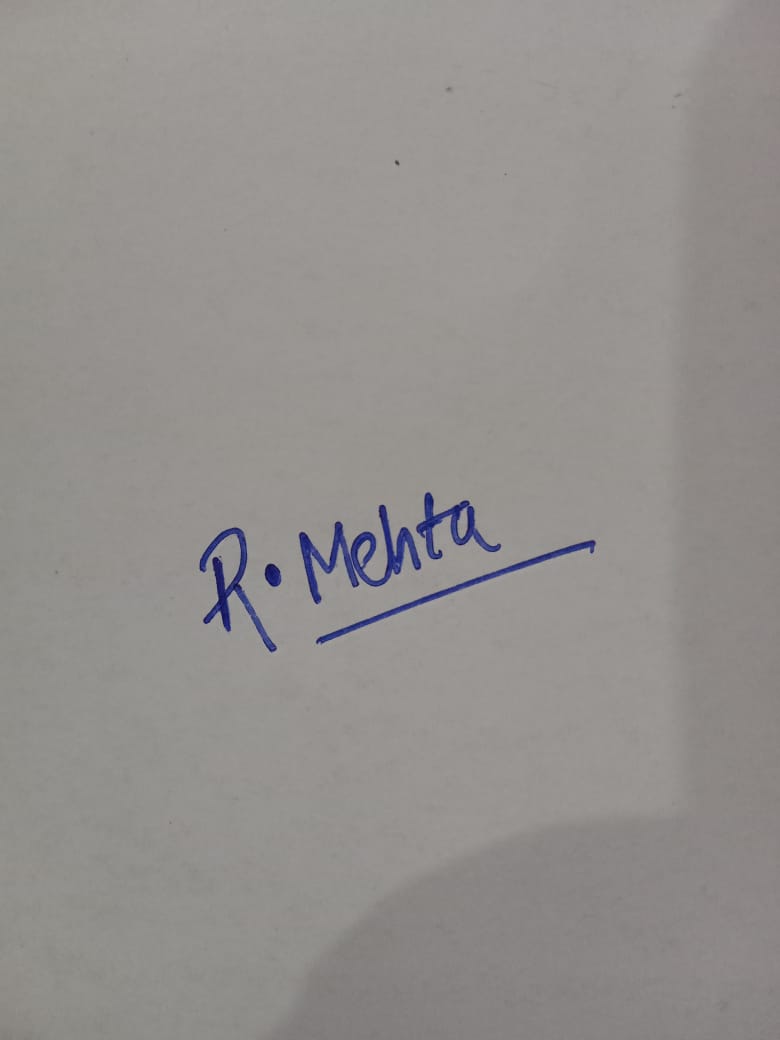 R. Mehta